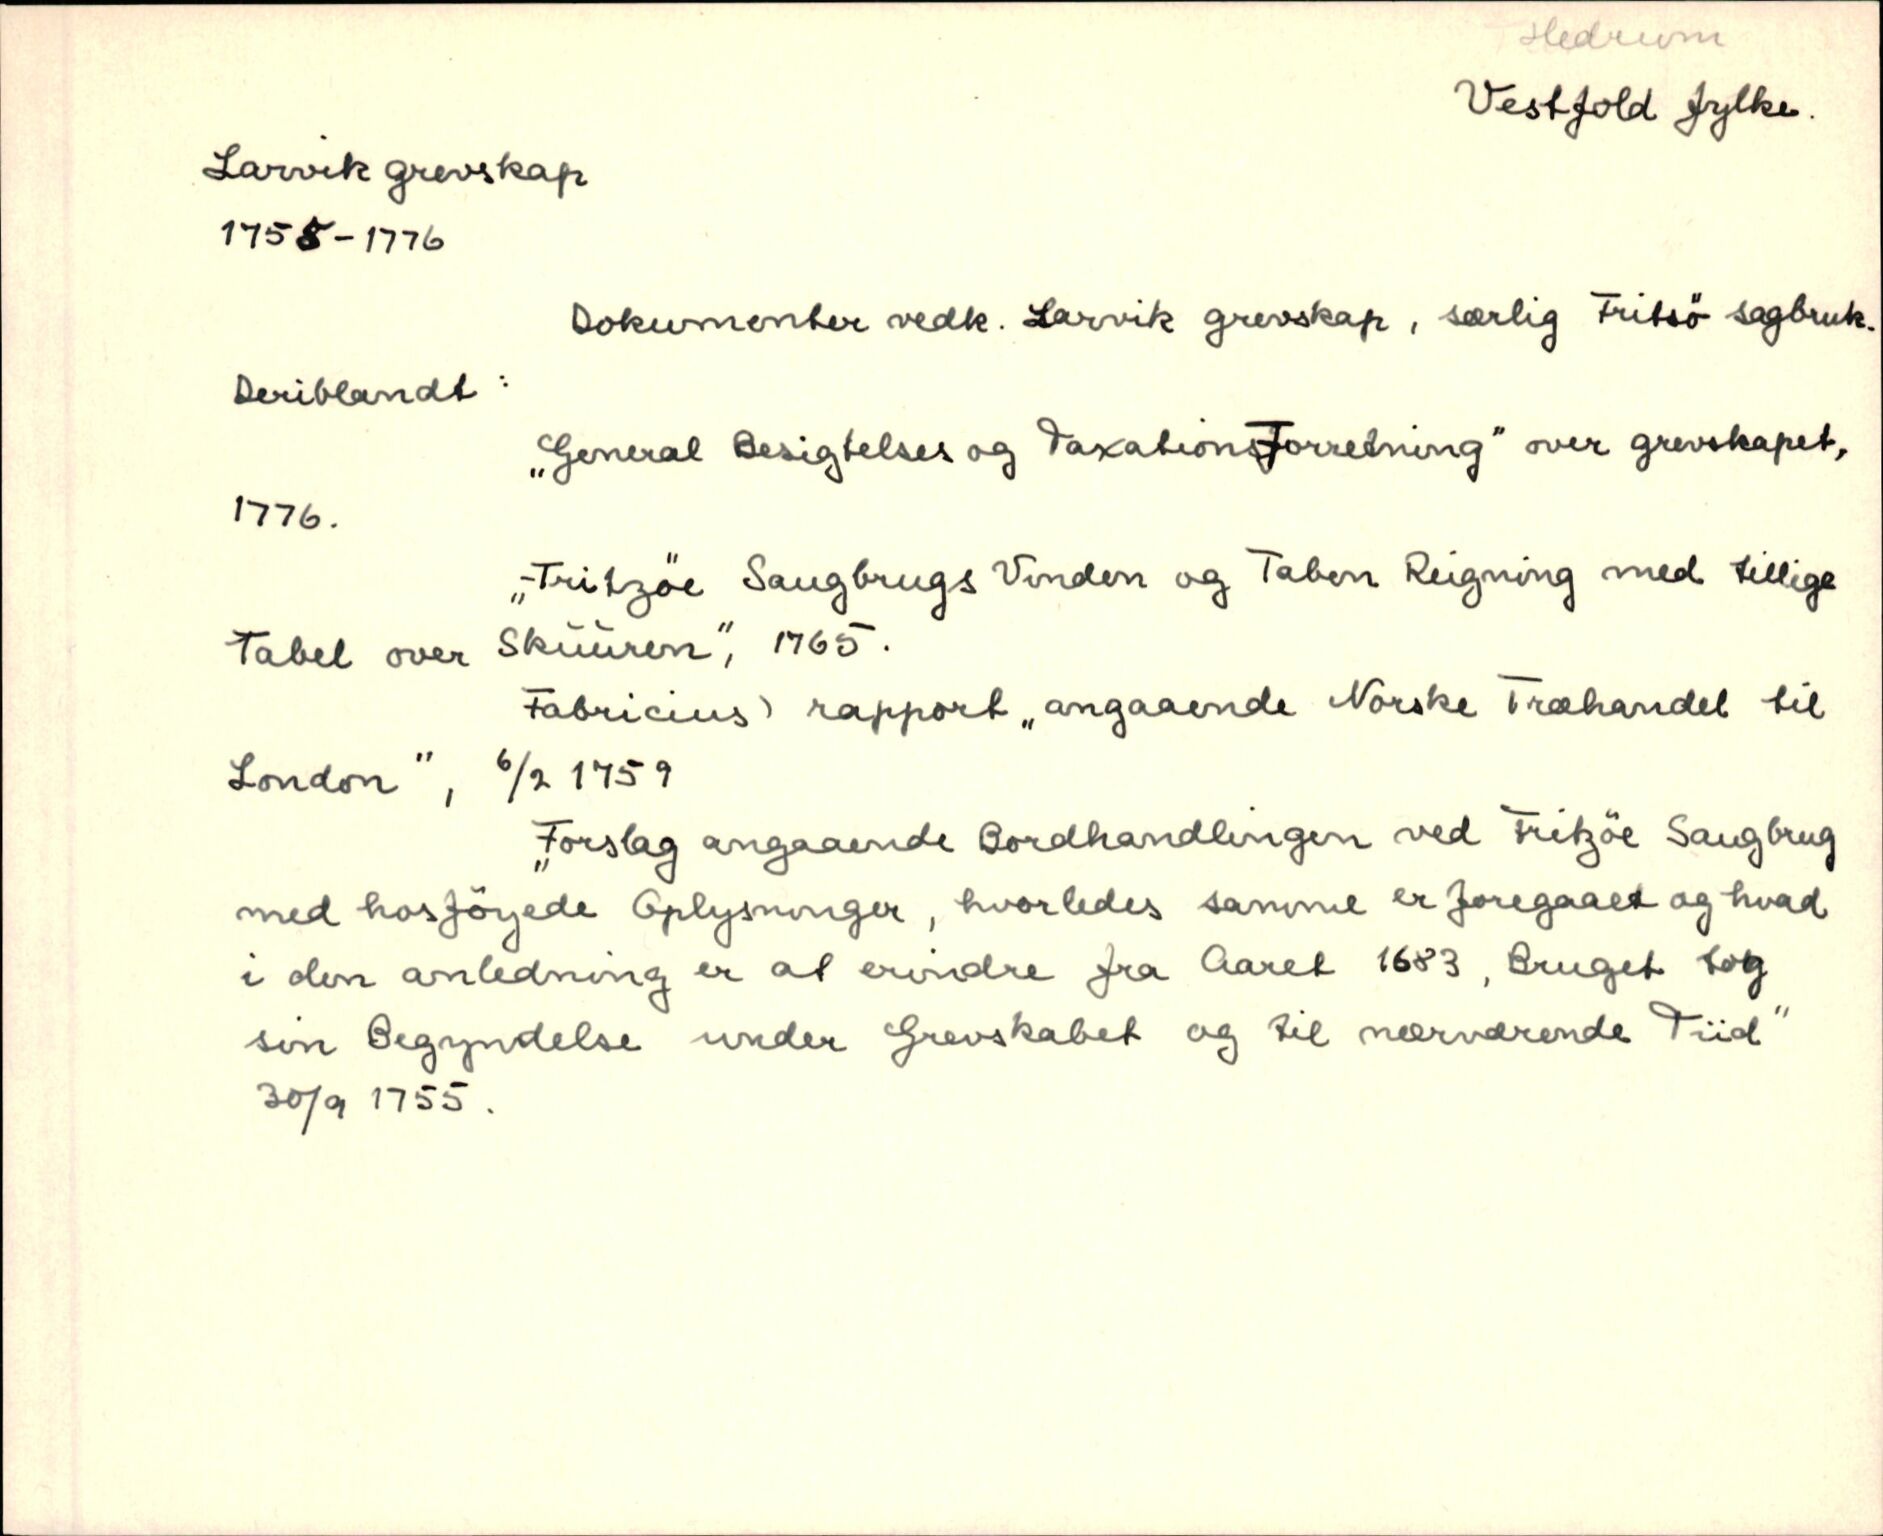 Hedrum
Vestfold fylke.
Larvik grevskap
1755-1776
Dokumenter vedk. Larvik grevskap, særlig Fritsö sagbruk.
Deriblandt:
„General Besigtelses og Taxationsforretning" over grevskapet,
1776.
„Fritzöe Saugbrugs Vinden og Taben Reigning med tillige
Tabel over Sküüren", 1765.
Fabricius' rapport „angaaende Norske Træhandel til
London", 6/2 1759
„Forslag angaaende Bordhandlingen ved Fritzöe Saugbrug
med hosföyede Oplysninger, hvorledes samme er foregaaet og hvad
i den anledning er at erindre fra Aaret 1683, Bruget tog
sin Begyndelse under Grevskabet og til nærværende Tiid"
30/9 1755.